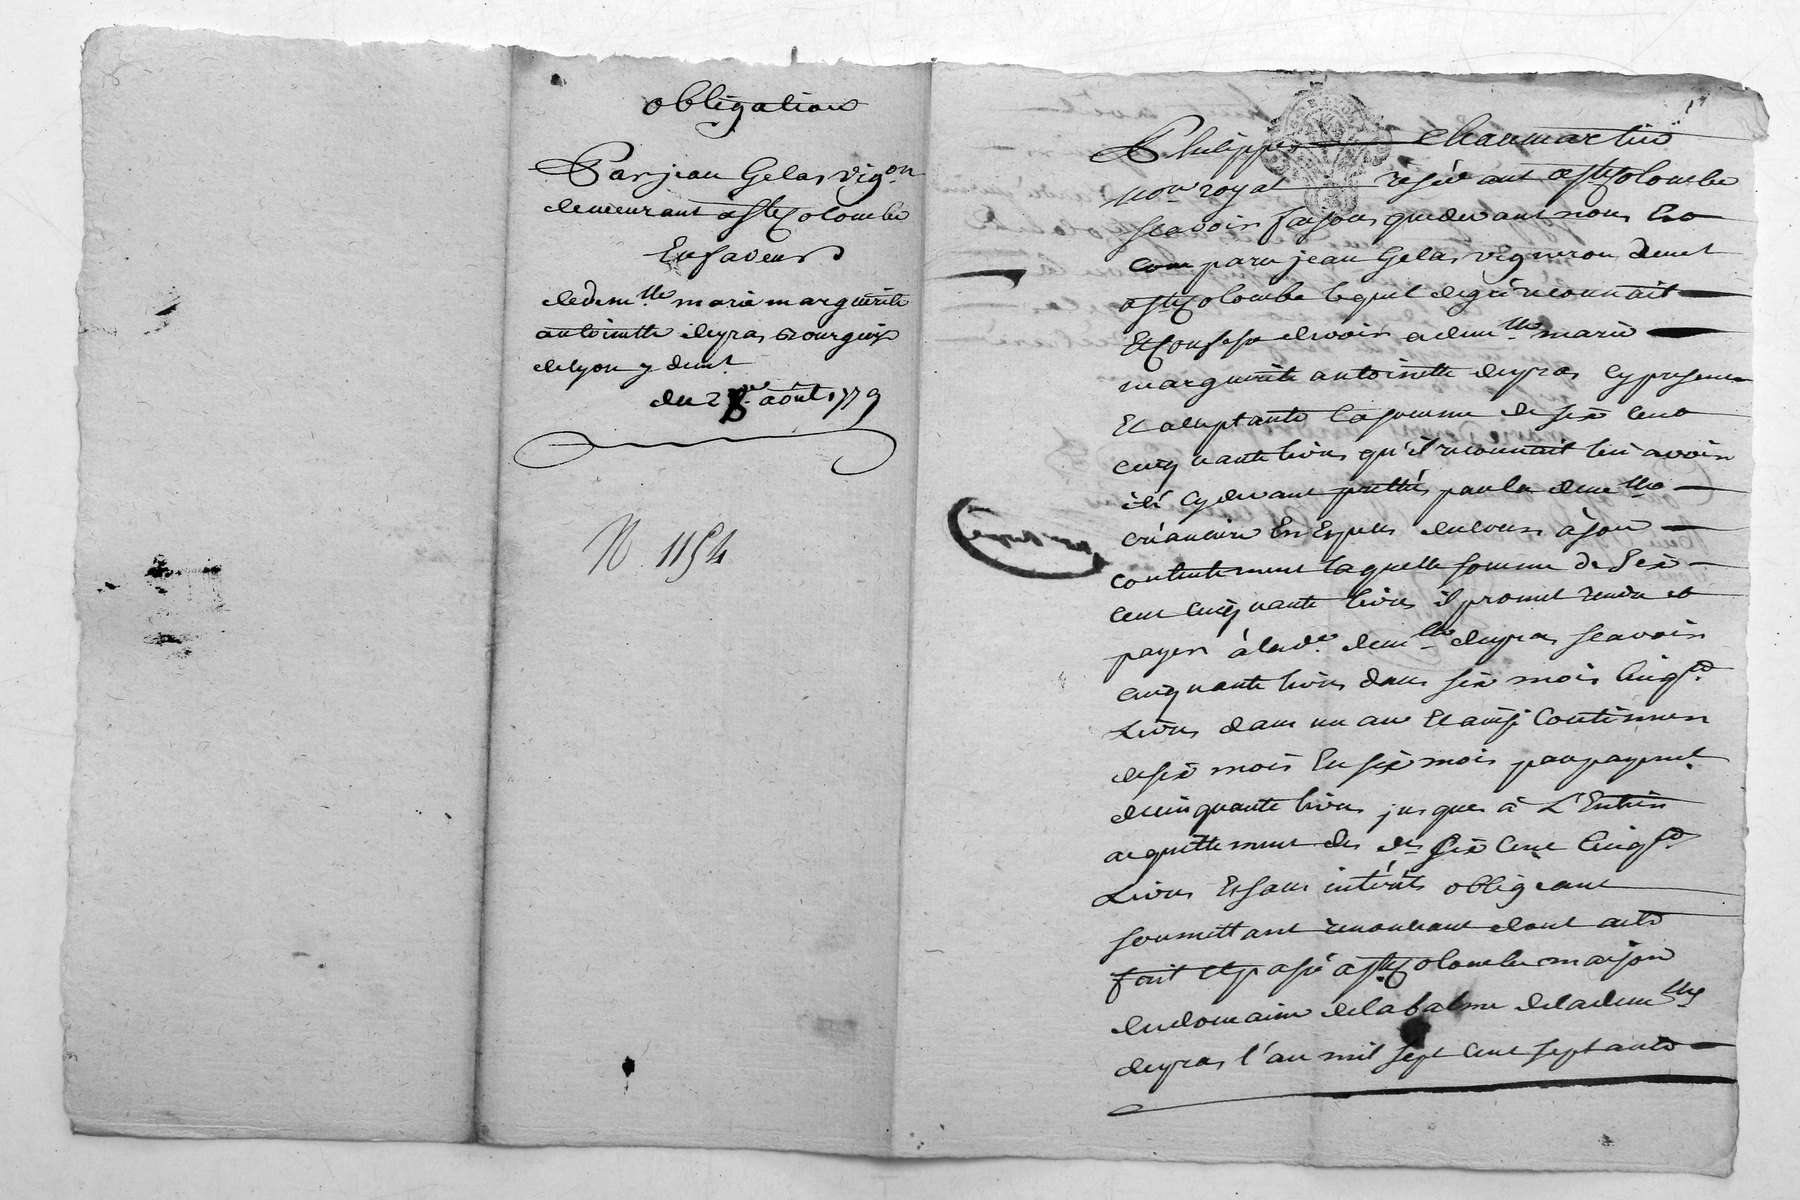 obligation
Par jean Gelas vig.on
demeurant à Ste Colombe
En faveur
de dem.lle marie marguerite
antoinette deyras Bourgeoise
de lyon y dem.t
du 28 août 1779
N 1154
Philippes Chaumartin
no.re royal résidant à Ste Colombe
scavoir faisons que devant nous Est
comparu jean Gelas vigneron dem.t
a Ste Colombe lequel de gré reconnait
Et confesse devoir a dem.lle marie
marguerite antoinette deyras cy presente
Et acceptante la somme de six cent
cinquante livres qu'il reconnait lui avoir
été cy devant prettés par la d. dem.lle
créanciere En Especes de cours à son
contentement laquelle somme de six
cent cinquante livres il promet rendre et
payer à la d.e dem.lle deyras scavoir
cinquante livres dans six mois cinq.te
Livres dans un an Et ainsi continuer
de six mois En six mois par payem.t
de cinquante livres jusques à L'Entier
acquittement des d. six cent cinq.te
Livres Et sans intérêts obligeant
soumettant renoncant dont acte
fait Et passé a Ste Colombe maison
du domaine de la balme de la dem.lle
deyras l'an mil sept cent septante